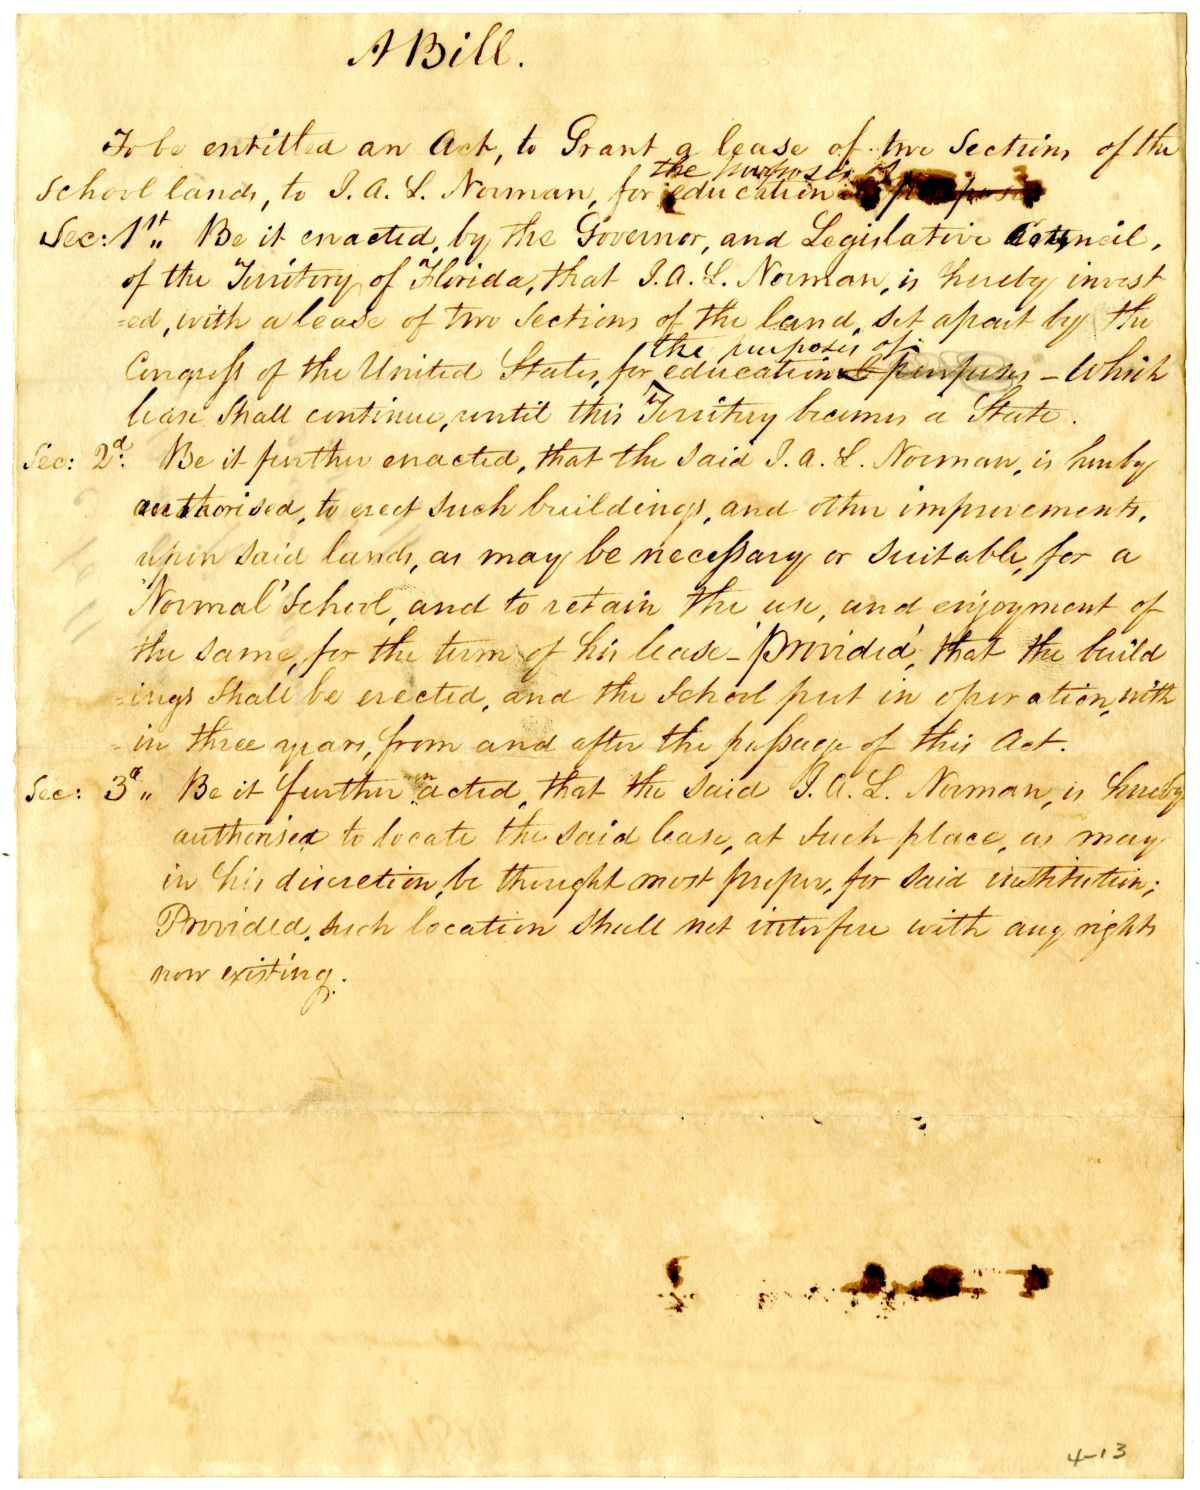 A Bill.
To be entitled an Act, to Grant a lease of two Sections of the
the purposes of
School lands, to J. A. L. Norman, for educational purposes
Sec: 1st„ Be it enacted, by the Governor, and Legislative Council,
of the Territory of Florida, that J. A. L. Norman, is hereby invest
=ed, with a lease of two Sections of the land, set apart by the
the purposes of
Congress of the United States, for educational purposes – Which
lease Shall continue, until this Territory becomes a State.
Sec: 2d: Be it further enacted, that the said J. A. L. Norman, is hereby
authorised, to erect such buildings, and other improvements,
upon said lands, as may be necessary or suitable, for a
"Normal" School, and to retain the use, and enjoyment of
the same, for the term of his lease – Provided, that the build
=ings Shall be erected, and the School put in operation, with
=in three years, from and after the passage of this Act.
Sec: 3d„ Be it further enacted, that the said J. A. L. Norman, is hereby
authorised to locate the said lease, at such place, as may
in his discretion, be thought most proper, for said institution;
Provided, such location shall not interfere with any rights
now existing.
4-13